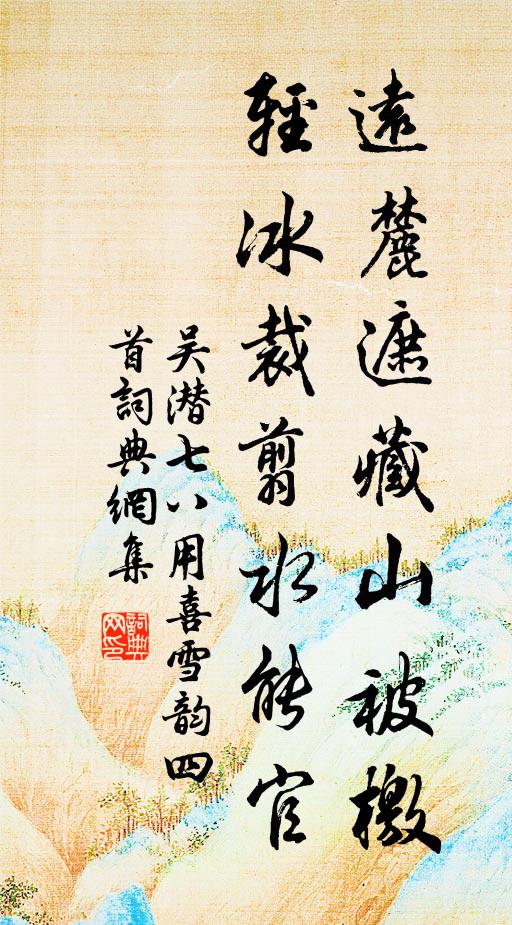 遠麓遮藏山被檄
輕冰裁翦水能官
吴潜七八用喜雪韵四
首詞典網集
詞典网印